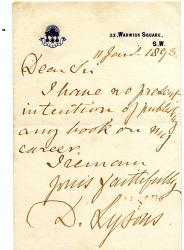 22, WARWICK SQUARE,
S.W.
11 Jan. 1893.
Dear Sir
I have no present
intention of publishing
any book on my
career.
I remain
yours faithfully
D. Lysons.